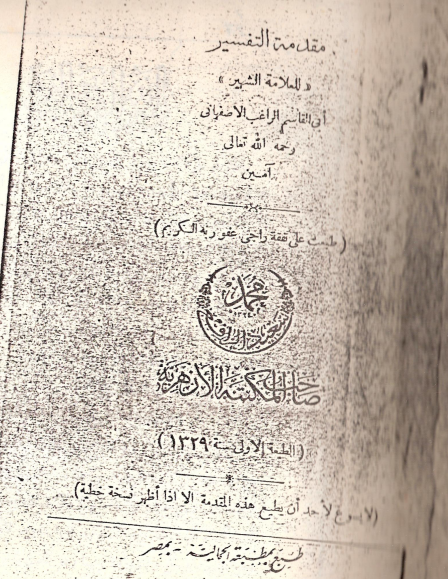 مقدمة التفسير
« للعلامة الشهير »
أبي القاسم الراغب الاصفهاني
رحمه الله تعالى
آمين
( طبعت على نفقة راجى عفو ربه الكريم )
محمد
سعيد الرافعي
صاحب المكتبة الأزهرية
( الطبعة الاولى سنة ١٣٢٩ )
( لا يسوغ لأحد أن يطبع هذه المقدمة الا اذا أظهر نسخة خطية )
طبع بمطبعة الجمالية - بمصر